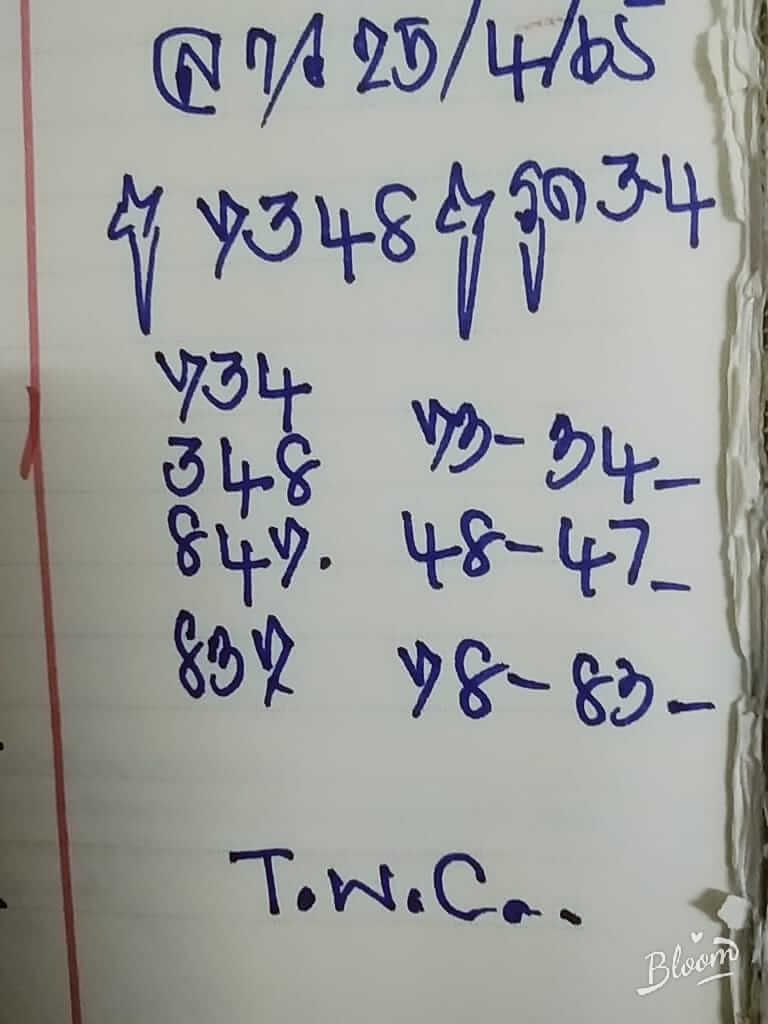 25/4/65
7348 รูด 3-4
734
348 73- 34-
847. 48-47-
837 78-83-
T.W.C..
Bloom